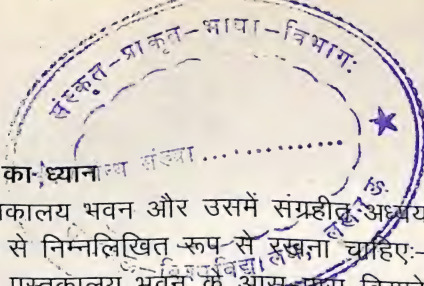 संस्कृत-प्राकृत-भाषा-विभागः
संख्या ..............
का ध्यान
कालय भवन और उसमें संग्रहीत अध्यय
से निम्नलिखित रूप से रखना चाहिए:-
पुस्तकालय भवन के आस पास